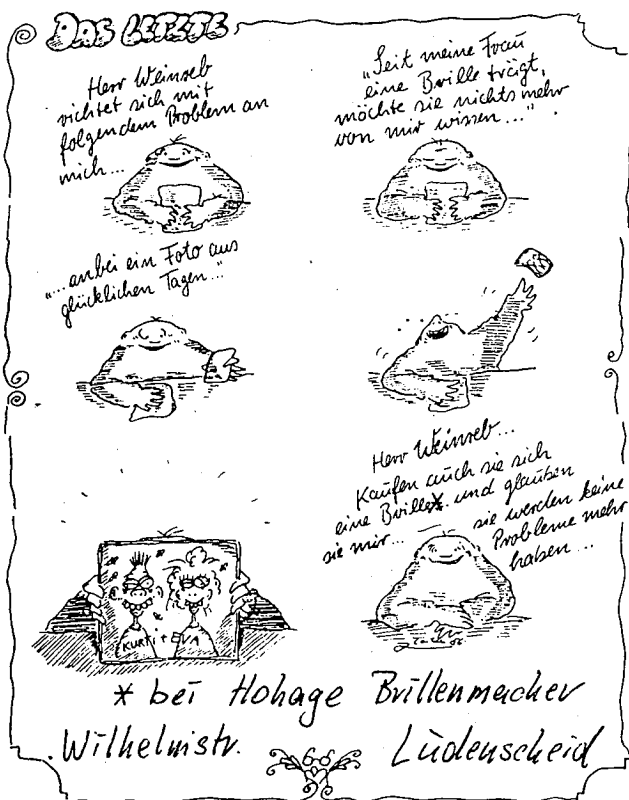 DAS LETZTE
Herr Weinreb
richtet sich mit
folgendem Problem an
mich...
„Seit meine Frau
eine Brille trägt,
möchte sie nichts mehr
von mir wissen..."
"...anbei ein Foto aus
glücklichen Tagen..."
KURTI + EVA
Herr Weinreb...
Kaufen auch sie sich
eine Brille* und glauben
sie mir... sie werden keine
Probleme mehr
haben...
* bei Hohage Brillenmacher
Wilhelmstr. Lüdenscheid